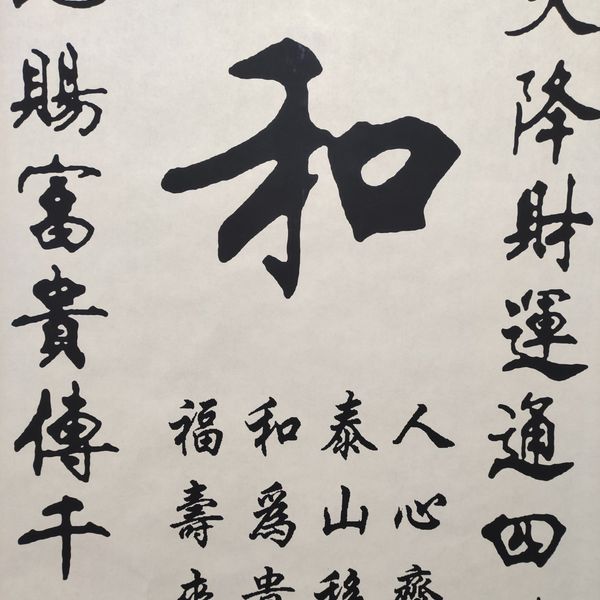 天降財運通四
和
人心齊
泰山移
和爲貴
福壽來
賜富貴傳千